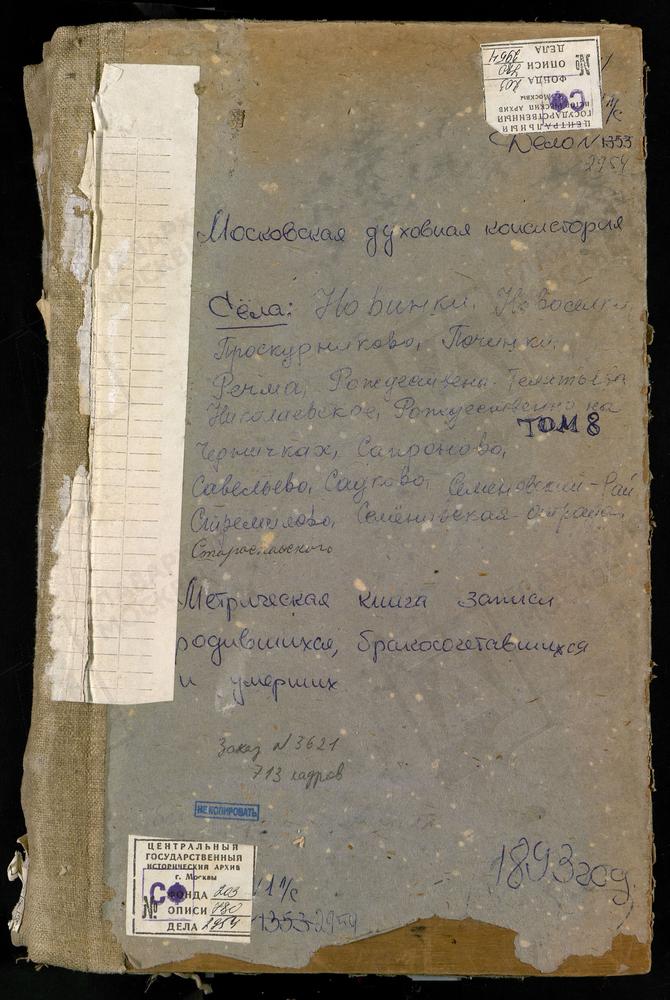 ЦЕНТРАЛЬНЫЙ
ГОСУДАРСТВЕННЫЙ
ИСТОРИЧЕСКИЙ АРХИВ
г. Москвы
СФ
ФОНДА 203
№ ОПИСИ 780
ДЕЛА 2954
Дело N 1353
2954
Московская духовная консистория
Сёла: Новинки, Новоселки,
Проскурниково, Починки,
Речма, Рождествена-Телятьева
Николаевское, Рождественно на
ТОМ 8
Черничках, Сапроново,
Савельево, Сауково, Семеновский-Рай
Стремилово, Семёновская-Отрада,
Староспасского
Метрическая книга записи
родившихся, бракосочетавшихся
и умерших
Заказ N 3621
713 кадров
НЕ КОПИРОВАТЬ
1893 год.
ЦЕНТРАЛЬНЫЙ
ГОСУДАРСТВЕННЫЙ
ИСТОРИЧЕСКИЙ АРХИВ
г. Москвы
СФ
ФОНДА 203
№ ОПИСИ 780
ДЕЛА 2954
1353 2954